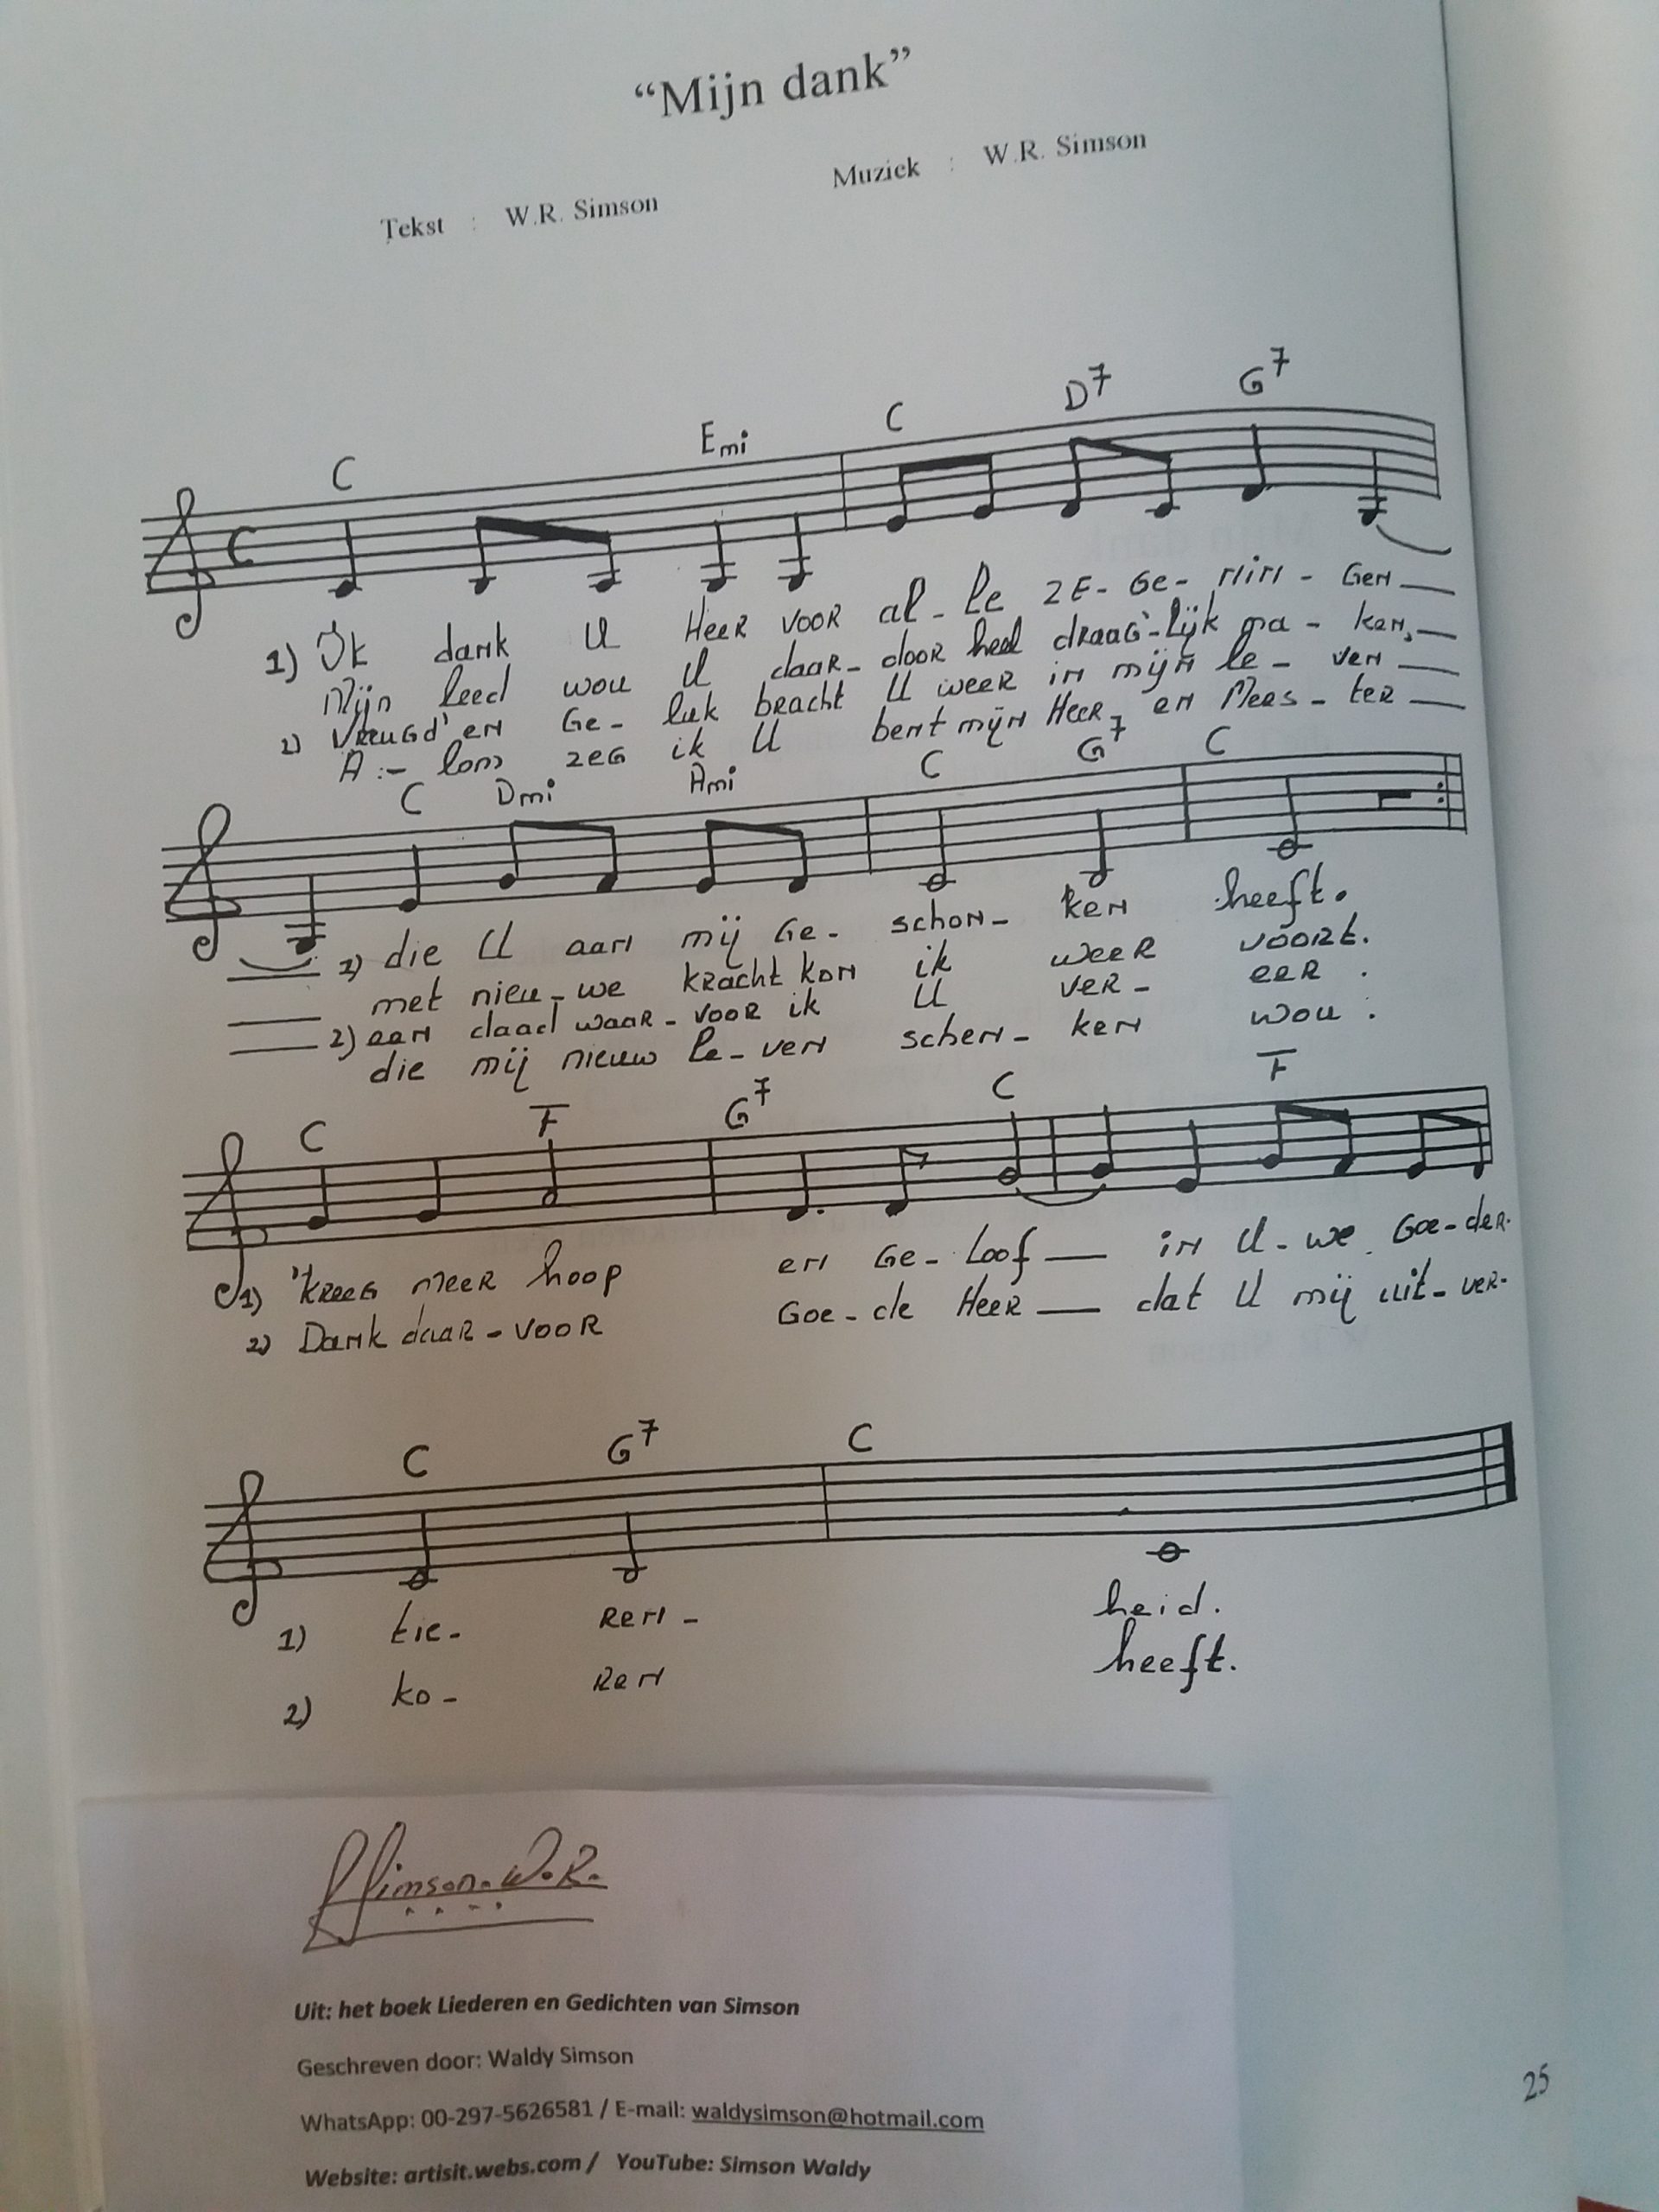 “Mijn dank”
Tekst : W.R. Simson Muziek : W.R. Simson
C Emi C D7 G7
1) Ik dank U Heer voor al- le ze- ge- nin- gen
Mijn leed wou U daar- door heel draag'-lijk ma- ken,
2) Vreugd' en ge- luk bracht U weer in mijn le- ven
A:- lom zeg ik U bent mijn Heer, en Mees- ter
C Dmi Ami C G7 C
1) die U aan mij ge- schon- ken heeft.
met nieu-we kracht kon ik weer voort.
2) een daad waar-voor ik U ver- eer.
die mij nieuw le-ven schen- ken wou.
C F G7 C F
1) 'kreeg meer hoop en ge- loof in U-we goe-der-
2) Dank daar-voor Goe-de Heer dat U mij uit-ver-
C G7 C
1) tie- ren- heid.
2) ko- ren heeft.
Simson. W.R.
Uit: het boek Liederen en Gedichten van Simson
Geschreven door: Waldy Simson
WhatsApp: 00-297-5626581 / E-mail: waldysimson@hotmail.com
Website: artisit.webs.com / YouTube: Simson Waldy
25